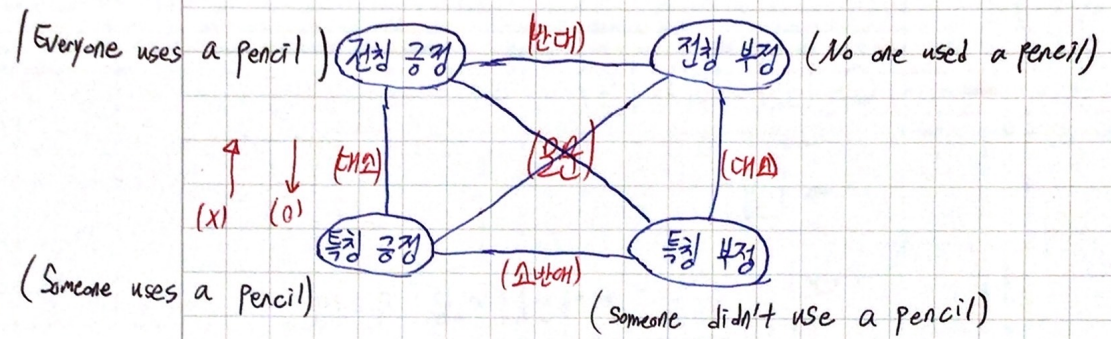 (Everyone uses a pencil) 전칭 긍정 (반대) 전칭 부정 (No one used a pencil)
(대소) (모순) (대소)
(X) (O)
특칭 긍정 (소반대) 특칭 부정
(Someone uses a pencil) (Someone didn't use a pencil)